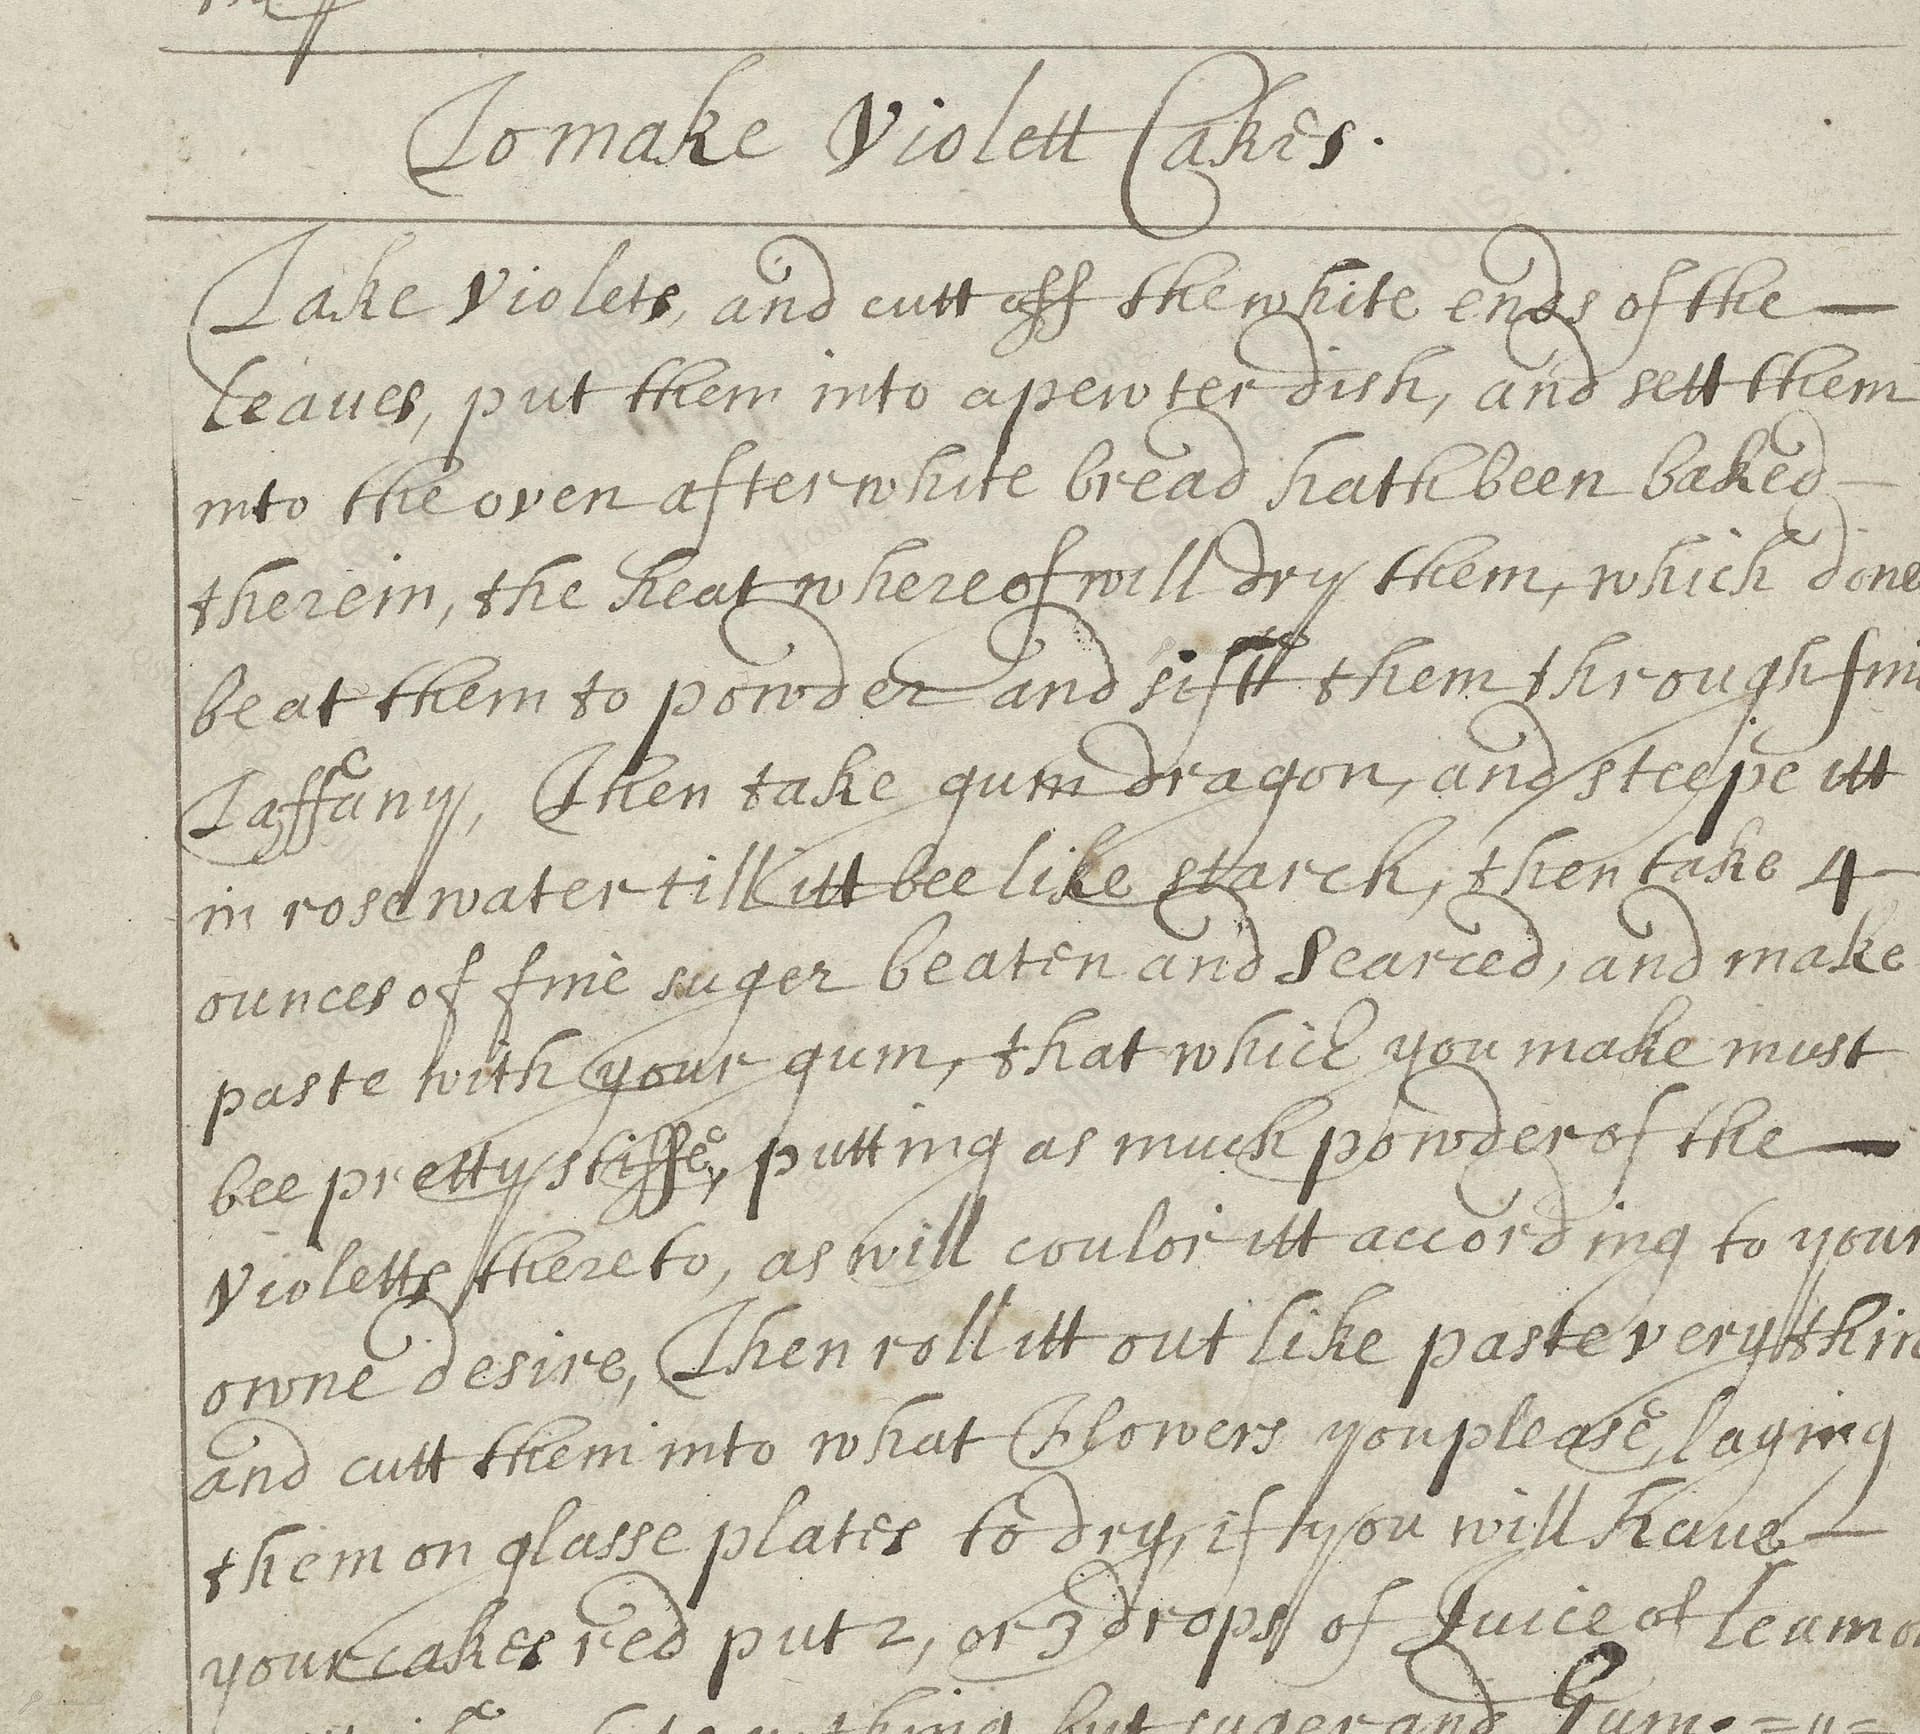 To make Violett Cakes.
Take Violets, and cutt off the white ends of the —
leaues, put them into a pewter dish, and sett them
into the oven after white bread hath been baked —
therein, the heat whereof will dry them, which done
beat them to powder and sift them through fin
Taffany, Then take gum dragon, and steepe itt
in rose water till itt bee like starch, then take 4 —
ounces of fine suger beaten and Searced, and make
paste with your gum, that which you make must
bee pretty stiffe, putting as much powder of the —
Violetts thereto, as will coulor itt according to your
owne desire, Then roll itt out like paste very thin
and cutt them into what Flowers you please, laying
them on glasse plates to dry, if you will haue —
your cakes red put 2, or 3 drops of Juice of Leamo
thing but suger and Gum